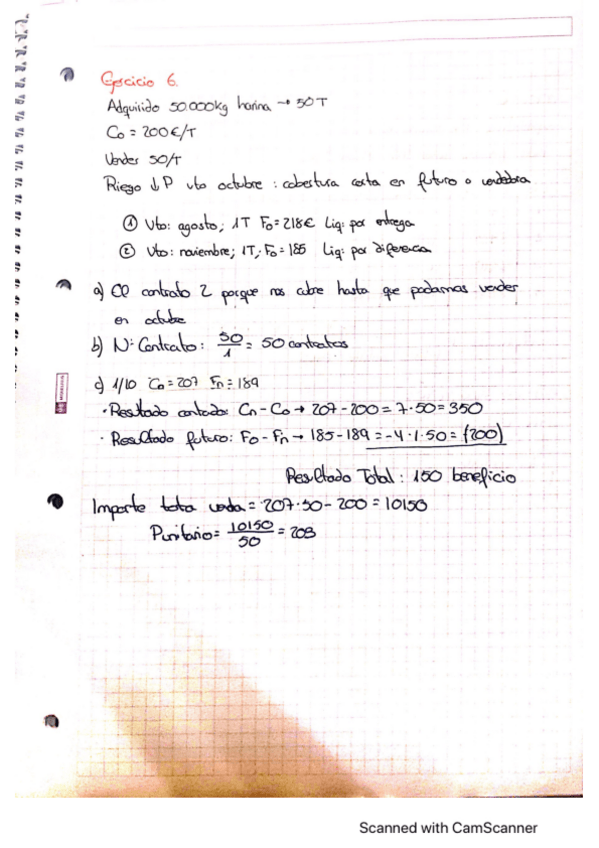 Ejercicio 6.
Adquirido 50.000kg harina → 50T
Co = 200€/T
Vender 50/T
Riego ↓P vto octubre : cobertura corta en futuro o vendedora
① Vto: agosto; 1T Fo=218€ Liq: por entrega
② Vto: noviembre; 1T; Fo=185 Liq: por diferencia
a) El contrato 2 porque nos cubre hasta que podamos vender
en octubre
b) Nº Contrato: 50/1 = 50 contratos
c) 1/10 Cn=207 Fn=189
· Resultado contado: Cn-Co → 207-200=7·50=350
· Resultado futuro: Fo-Fn → 185-189=-4·1·50=(200)
Resultado Total: 150 beneficio
Importe total venta = 207·50-200=10150
Punitario= 10150/50 = 203
Scanned with CamScanner